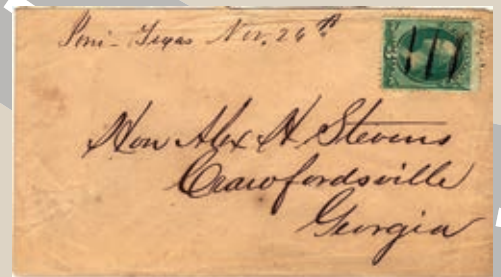 Peri - Texas Nov. 26th
Hon Alex H Stevens
Crawfordsville
Georgia